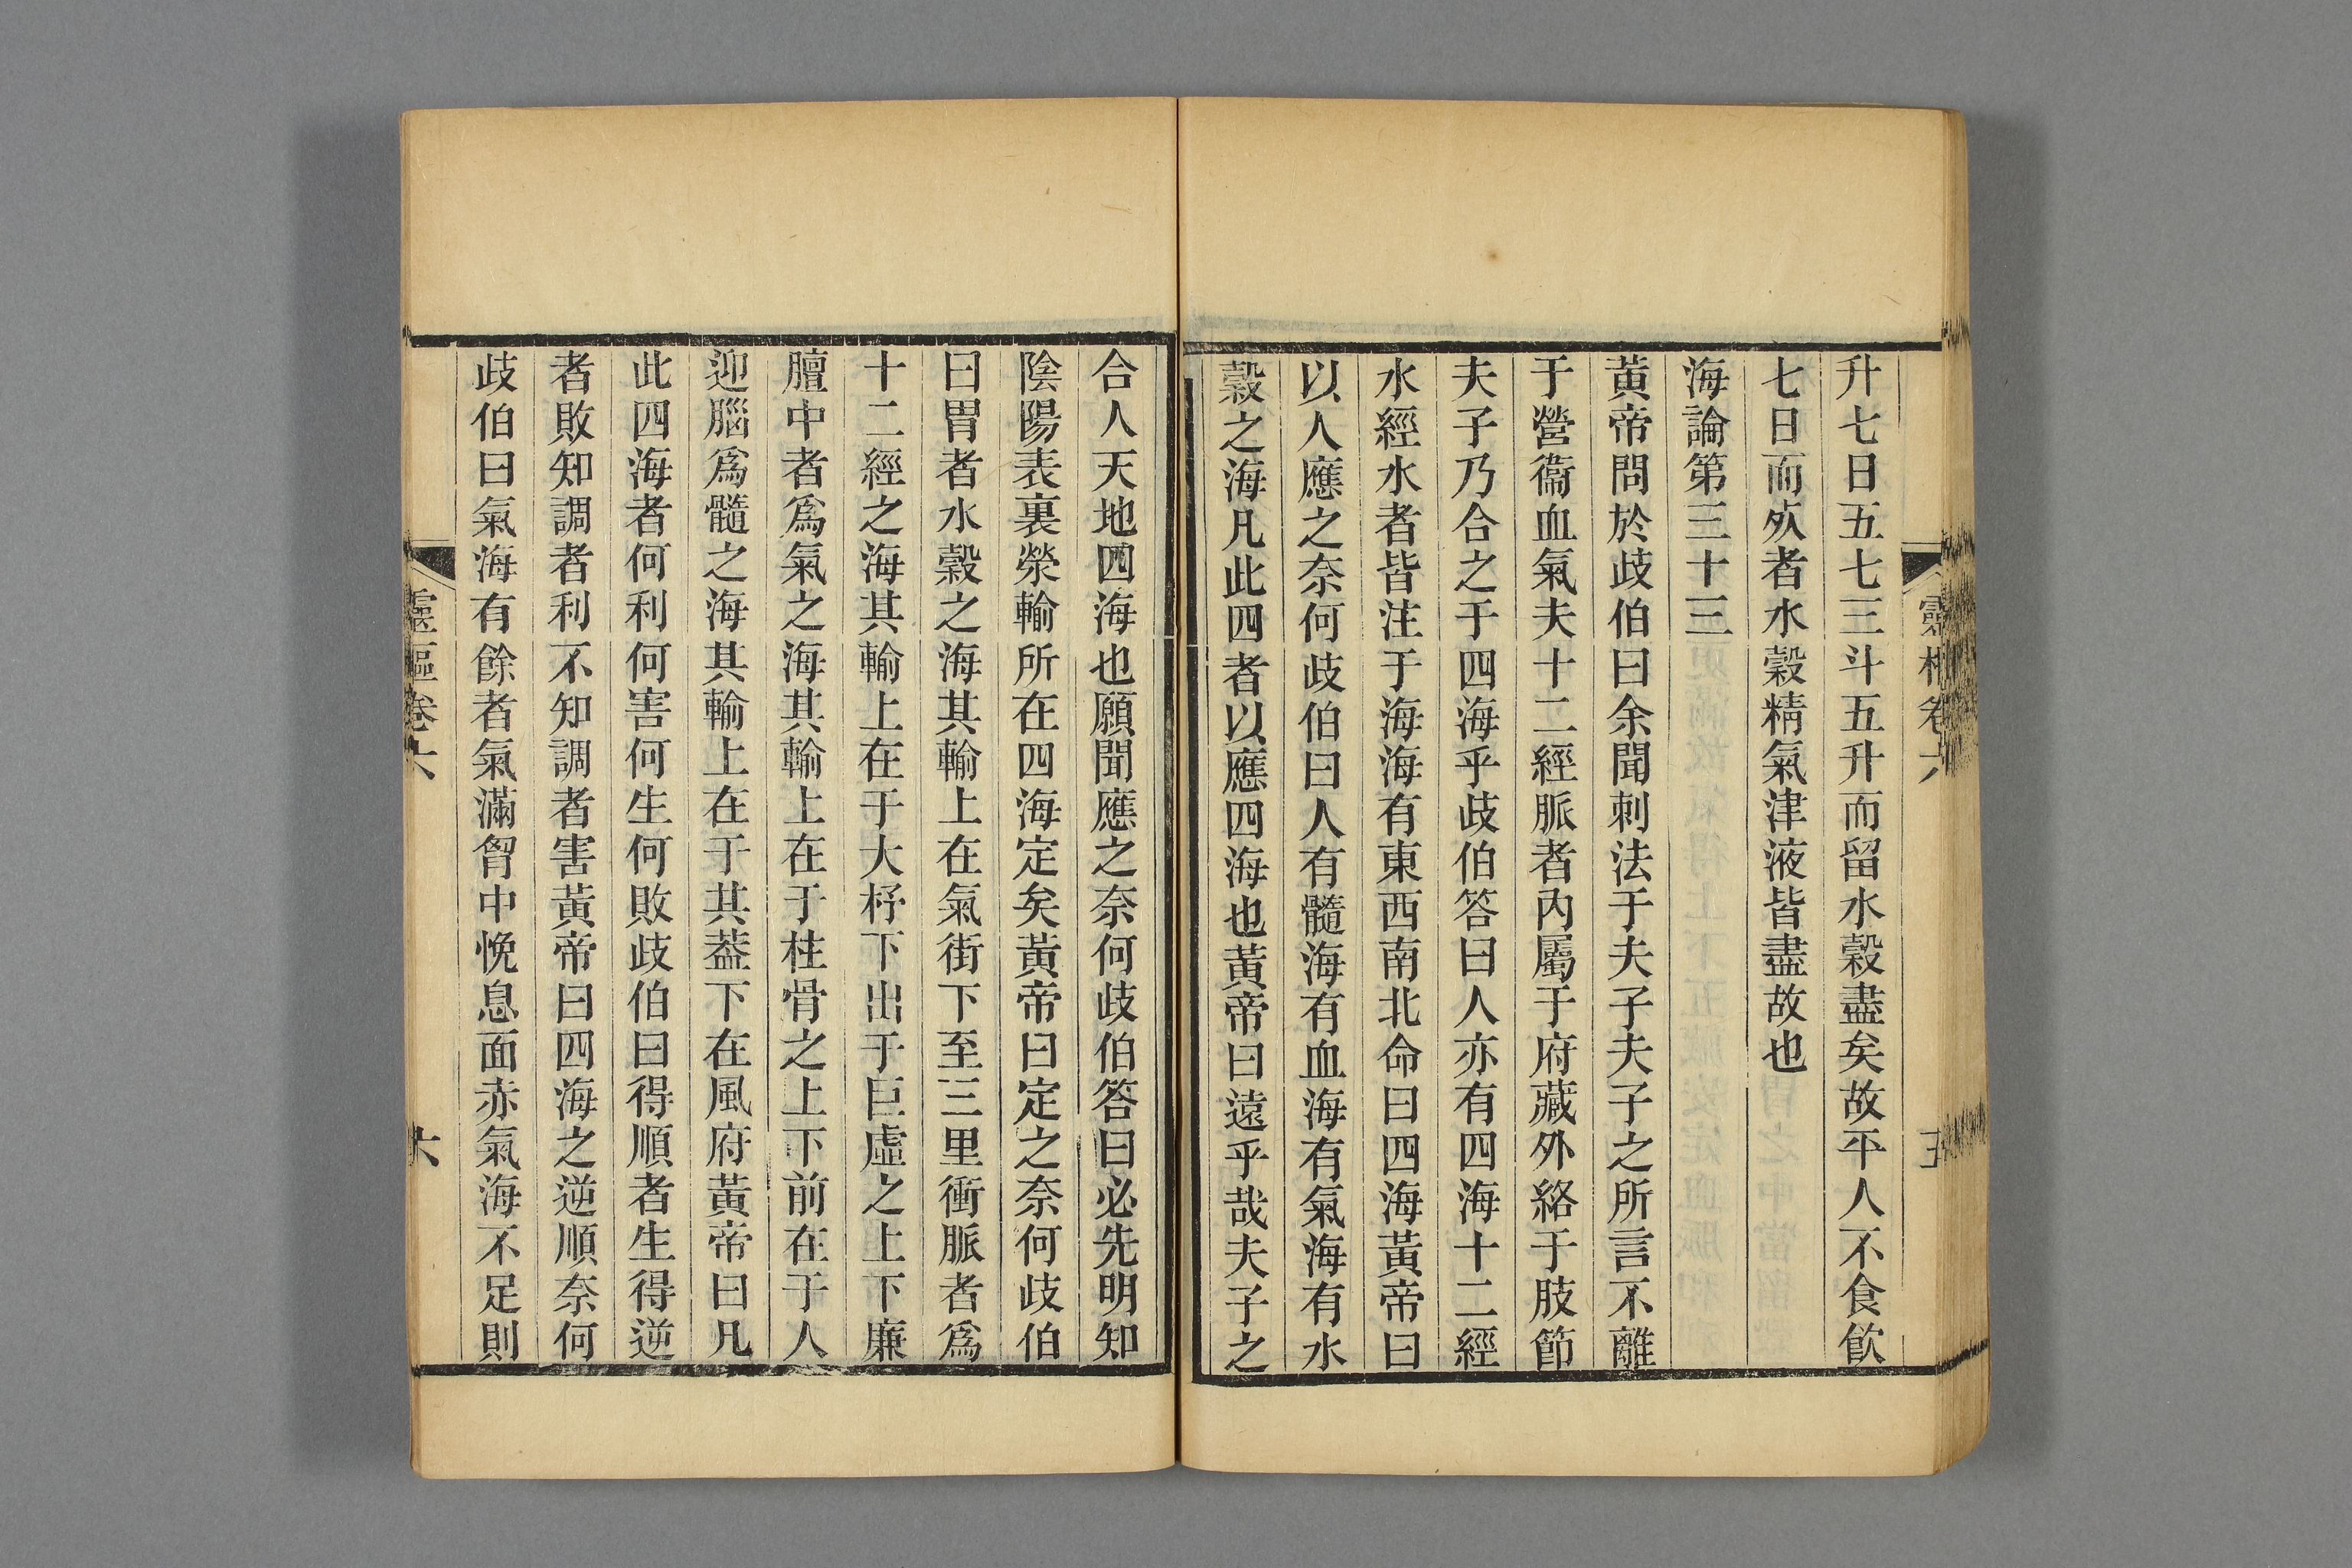 靈樞卷六
五
升七日五七三斗五升而留水穀盡矣故平人不食飲
七日而死者水穀精氣津液皆盡故也
海論第三十三
黃帝問於歧伯曰余聞刺法于夫子夫子之所言不離
于營衞血氣夫十二經脈者內屬于府藏外絡于肢節
夫子乃合之于四海乎歧伯答曰人亦有四海十二經
水經水者皆注于海海有東西南北命曰四海黃帝曰
以人應之奈何歧伯曰人有髓海有血海有氣海有水
穀之海凡此四者以應四海也黃帝曰遠乎哉夫子之
合人天地四海也願聞應之奈何歧伯答曰必先明知
陰陽表裏滎輸所在四海定矣黃帝曰定之奈何歧伯
曰胃者水穀之海其輸上在氣街下至三里衝脈者爲
十二經之海其輸上在于大杼下出于巨虛之上下廉
膻中者爲氣之海其輸上在于柱骨之上下前在于人
迎腦爲髓之海其輸上在于其葢下在風府黃帝曰凡
此四海者何利何害何生何敗歧伯曰得順者生得逆
者敗知調者利不知調者害黃帝曰四海之逆順奈何
歧伯曰氣海有餘者氣滿胷中悗息面赤氣海不足則
靈樞卷六
六